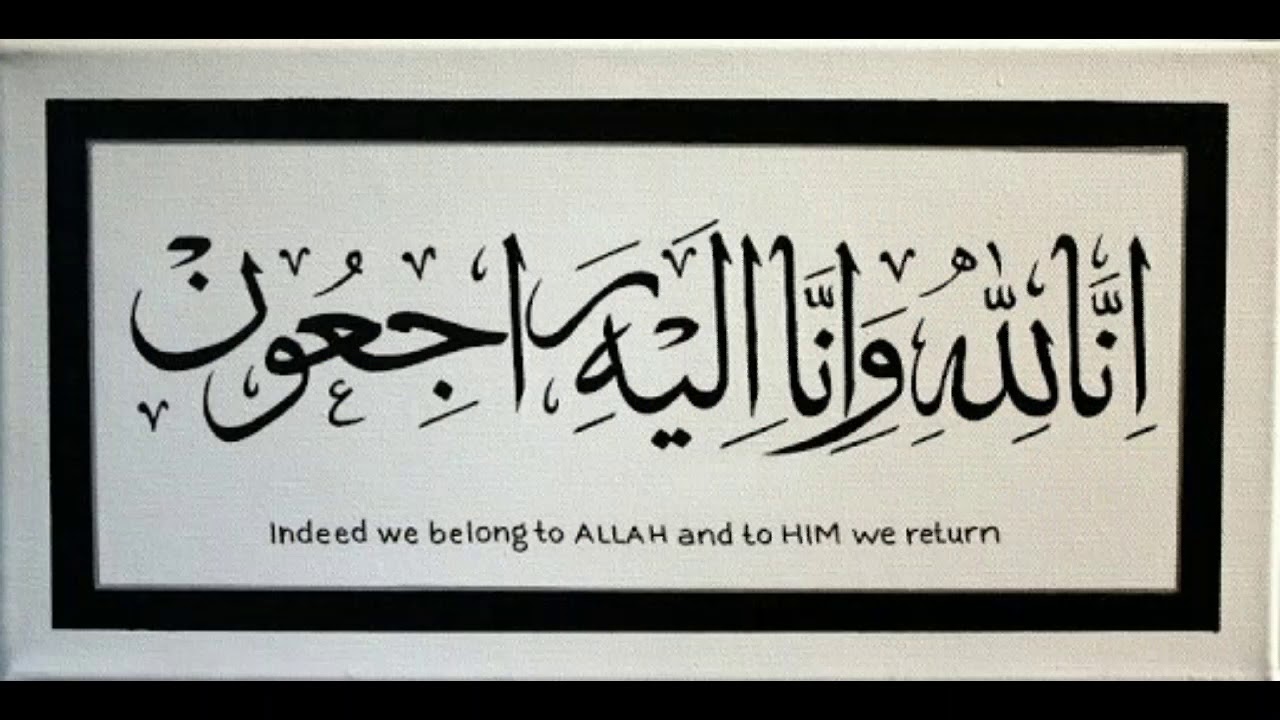 اِنَّا لِلّٰهِ وَاِنَّا اِلَيْهِ رَاجِعُوْنَ
Indeed we belong to ALLAH and to HIM we return